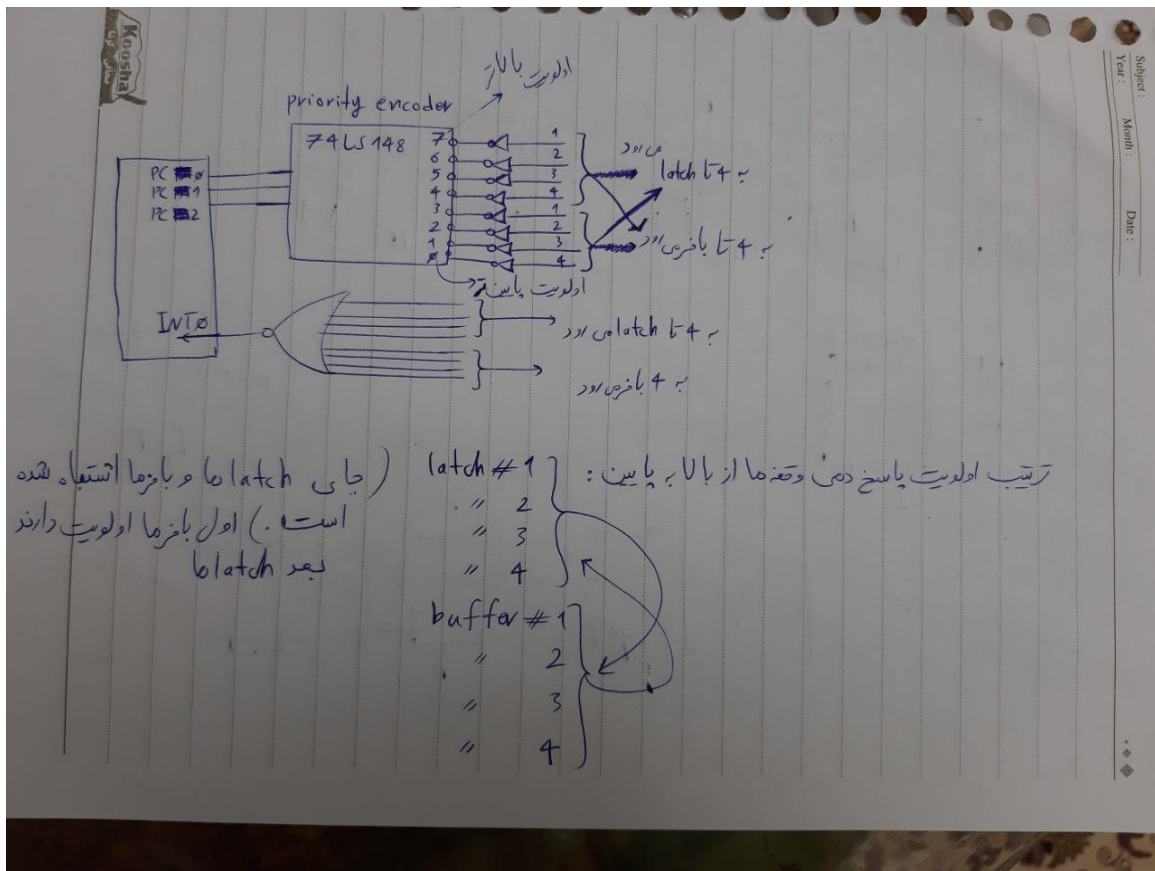 Koosha
Subject :
Year : Month : Date :
اولویت بالاتر
priority encoder
74LS148
7
6
5
4
3
2
1
0
1
2
3
4
1
2
3
4
PC 0
PC 1
PC 2
به 4 تا latch می‌رود
به 4 تا بافر می‌رود
اولویت پایین‌تر
INT0
به 4 تا latch می‌رود
به 4 بافر می‌رود
ترتیب اولویت پاسخ دهی وقفه‌ها از بالا به پایین :
latch # 1
" 2
" 3
" 4
buffer # 1
" 2
" 3
" 4
(جای latch ها و بافرها اشتباه شده
است .) اول بافرها اولویت دارند
بعد latch ها